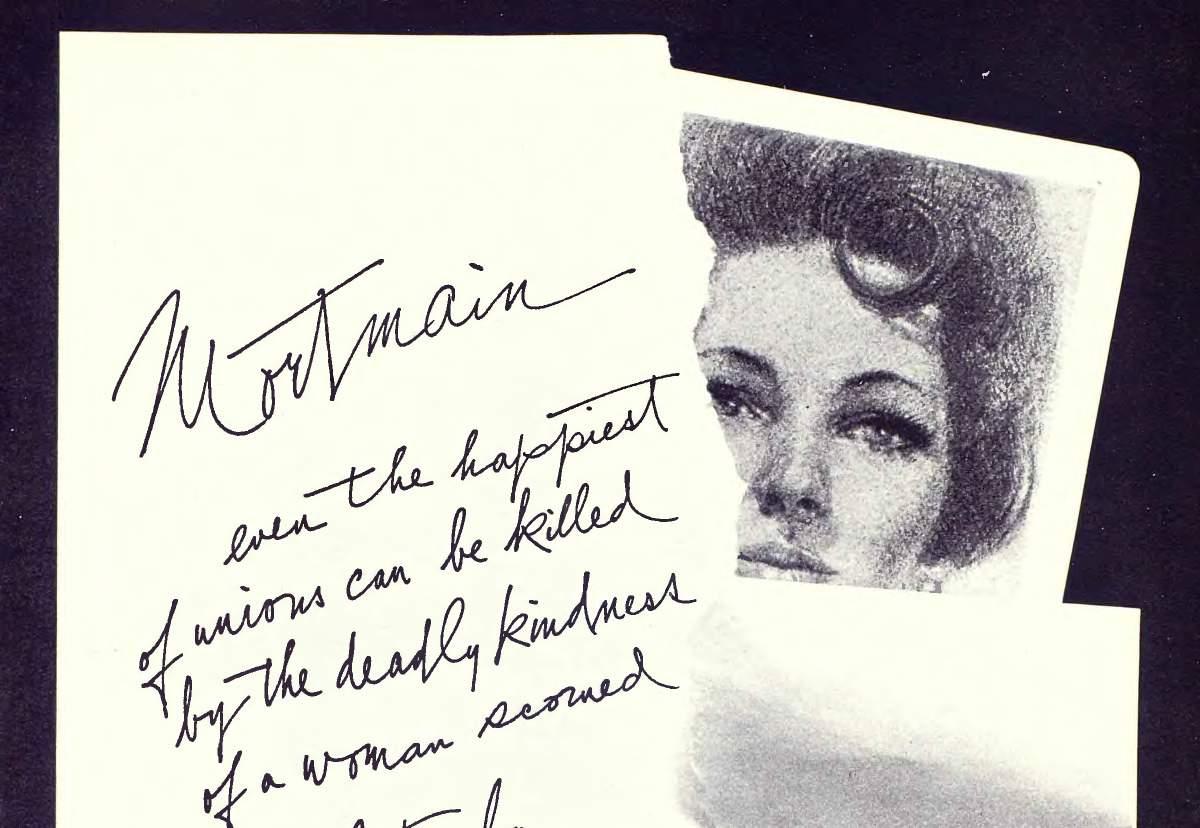 Mortmain
even the happiest
of unions can be killed
by the deadly kindness
of a woman scorned